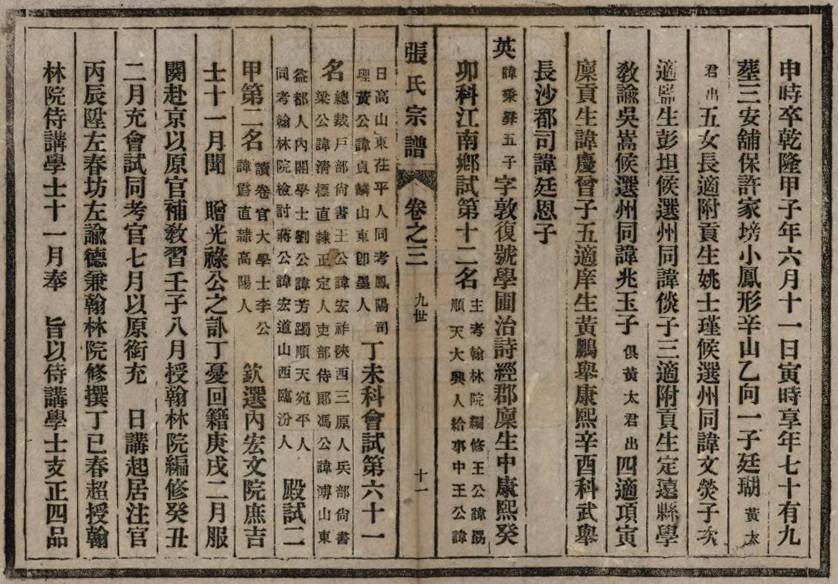 申時卒乾隆甲子年六月十一日寅時享年七十有九
塟三安舖保許家塝小鳳形辛山乙向一子廷瑚黃太
君出五女長適附貢生姚士瑾候選州同諱文熒子次
適監生彭坦候選州同諱倓子三適附貢生定遠縣學
教諭吳嵩候選州同諱兆玉子俱黃太君出四適項寅
廩貢生諱慶曾子五適庠生黃鵬舉康熙辛酉科武舉
長沙都司諱廷恩子
英諱秉彝五子字敦復號學圃治詩經郡廩生中康熙癸
卯科江南鄉試第十二名主考翰林院編修王公諱勗
順天大興人給事中王公諱
張氏宗譜 卷之三 九世 十一
日高山東茌平人同考鳳陽司
理黃公諱貞麟山東卽墨人丁未科會試第六十一
名總裁戶部尚書王公諱宏祚陝西三原人兵部尚書
梁公諱清標直隸正定人吏部侍郎馮公諱溥山東
益都人內閣學士劉公諱芳躅順天宛平人
同考翰林院檢討蔣公諱宏道山西臨汾人殿試二
甲第二名讀卷官大學士李公
諱霨直隸高陽人欽選內宏文院庶吉
士十一月聞 贈光祿公之訃丁憂回籍庚戌二月服
闋赴京以原官補教習壬子八月授翰林院編修癸丑
二月充會試同考官七月以原銜充 日講起居注官
丙辰陞左春坊左諭德兼翰林院修撰丁巳春超授翰
林院侍講學士十一月奉 旨以侍講學士支正四品